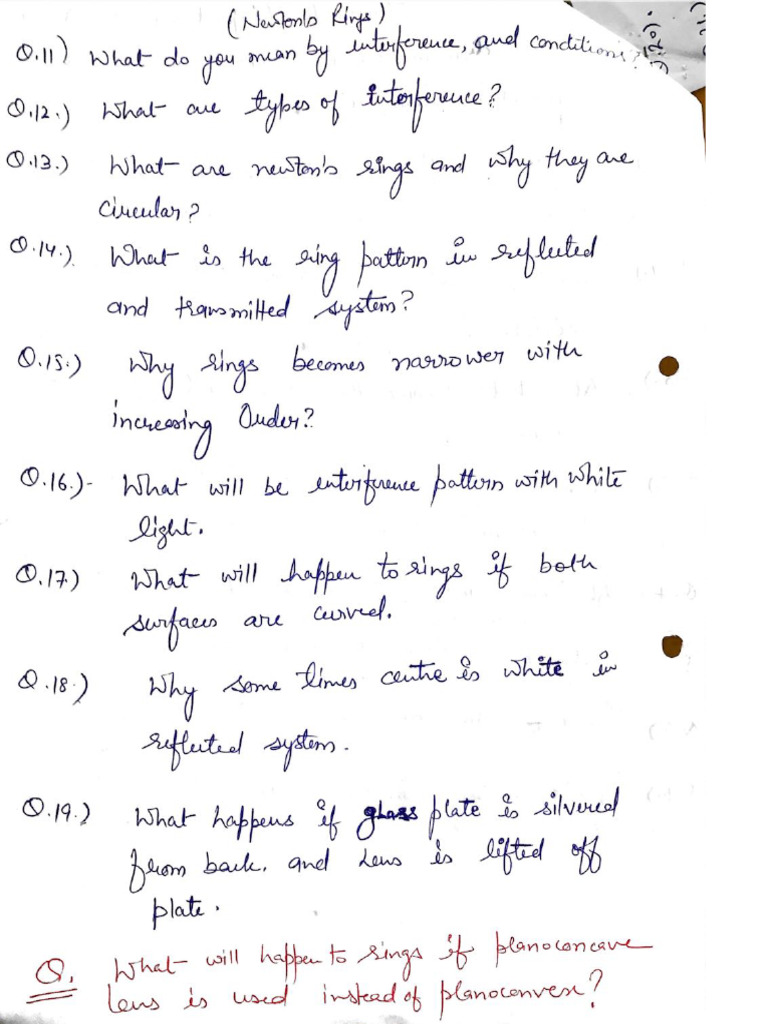 (Newton's Rings)
Q.11) What do you mean by interference, and conditions?
Q.12.) What are types of interference?
Q.13.) What are newton's rings and why they are
circular?
Q.14.) What is the ring pattern in reflected
and transmitted system?
Q.15.) Why rings becomes narrower with
increasing Order?
Q.16.)- What will be interference pattern with white
light.
Q.17.) What will happen to rings if both
surfaces are curved.
Q.18.) Why some times centre is white in
reflected system.
Q.19.) What happens if glass plate is silvered
from back. and Lens is lifted off
plate.
Q. What will happen to rings if planoconcave
Lens is used instead of planoconvex?